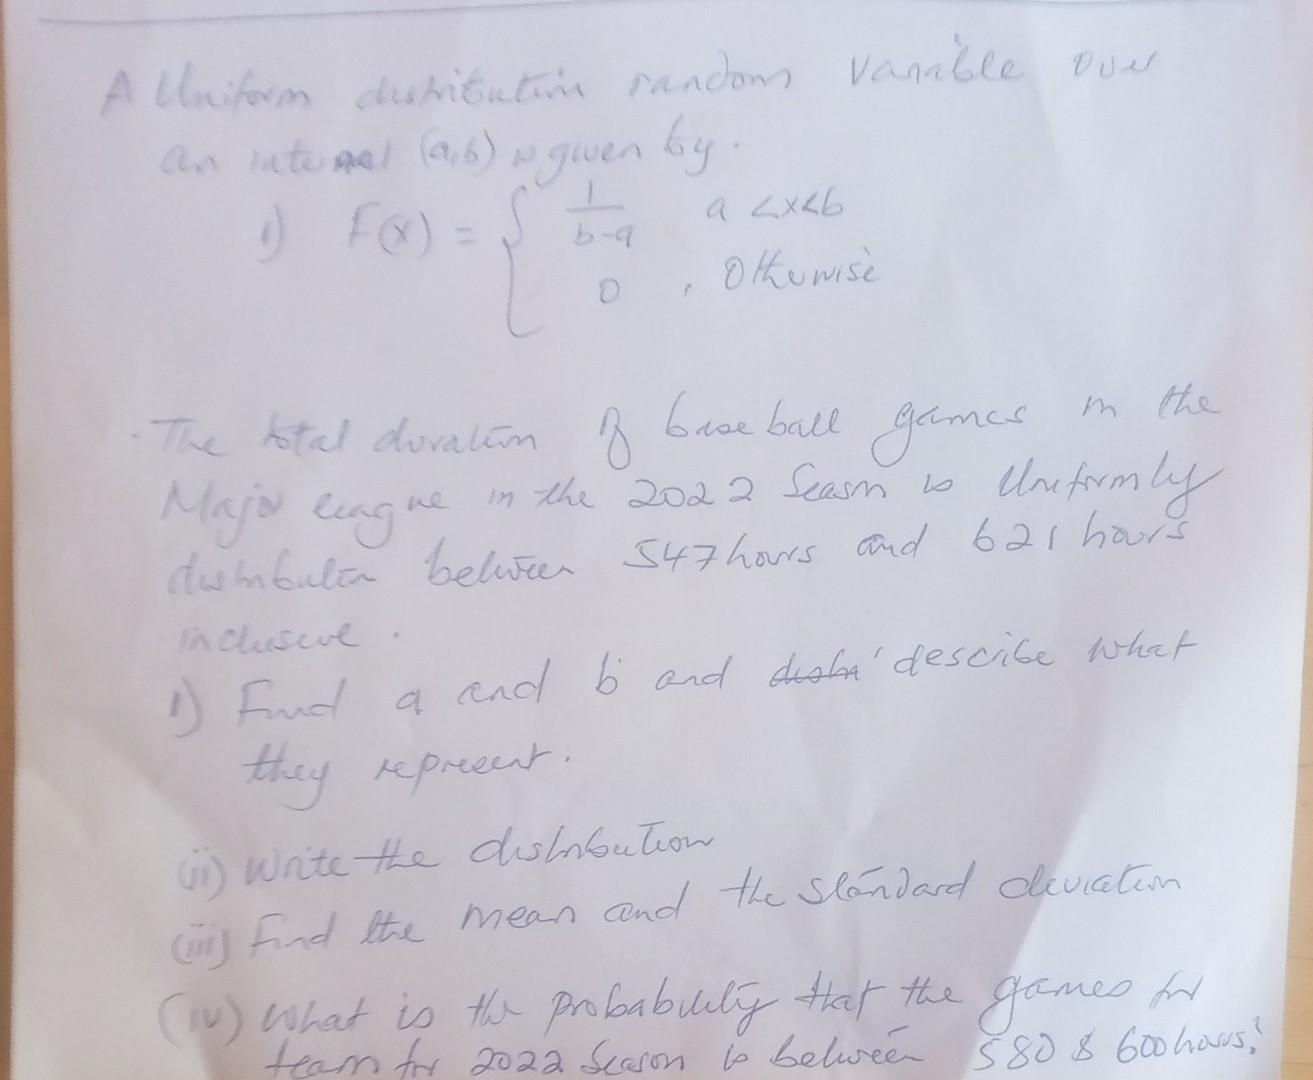 A Uniform distribution random variable over
an interval (a,b) is given by.
1) F(x) = { 1/b-a a <x<b
0 , Otherwise
The total duration of baseball games in the
Major league in the 2022 Season is Uniformly
distribution between 547 hours and 621 hours
inclusive.
1) Find a and b and describe what
they represent.
(ii) Write the distribution
(iii) Find the mean and the standard deviation
(iv) What is the probability that the games for
team for 2022 Season is between 580 & 600 hours?